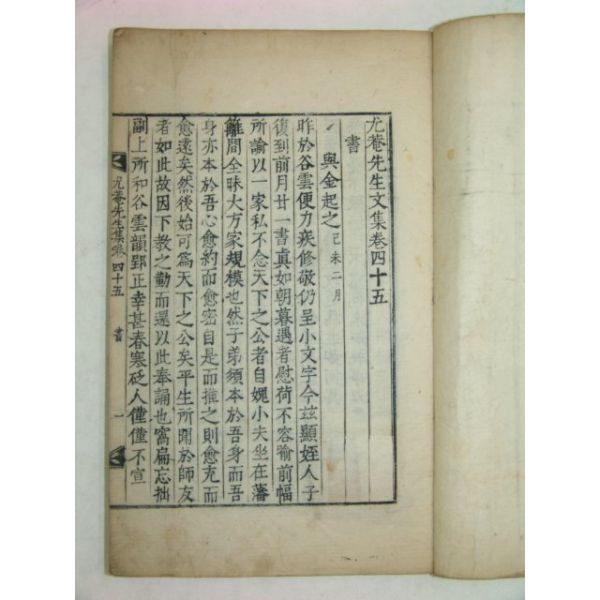 尤菴先生文集卷四十五
書
與金起之 己未二月
昨於谷雲便力疾修敬仍呈小文字今玆顯姪人子
復到前月廿一書眞如朝暮遇者慰荷不容喩前幅
所諭以一家私不念天下之公者自媿小夫坐在藩
籬間全昧大方家規模也然子弟須本於吾身而吾
身亦本於吾心愈約而愈密自是而推之則愈充而
愈遠矣然後始可爲天下之公矣平生所聞於師友
者如此故因下敎之勤而還以此奉誦也窩扁忘拙
副上所和谷雲韻郢正幸甚春寒砭人僅僅不宣
尤菴先生集卷四十五 書 一